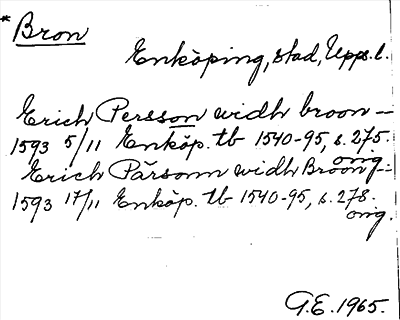 *Bron
Enköping, stad, Upps. l.
Erich Persson widh broon —
1593 5/11 Enköp. tb 1540-95, s. 275.
orig.
Erich Pärsonn widh Broon —:
1593 17/11 Enköp. tb 1540-95, s. 278.
orig.
G.E. 1965.